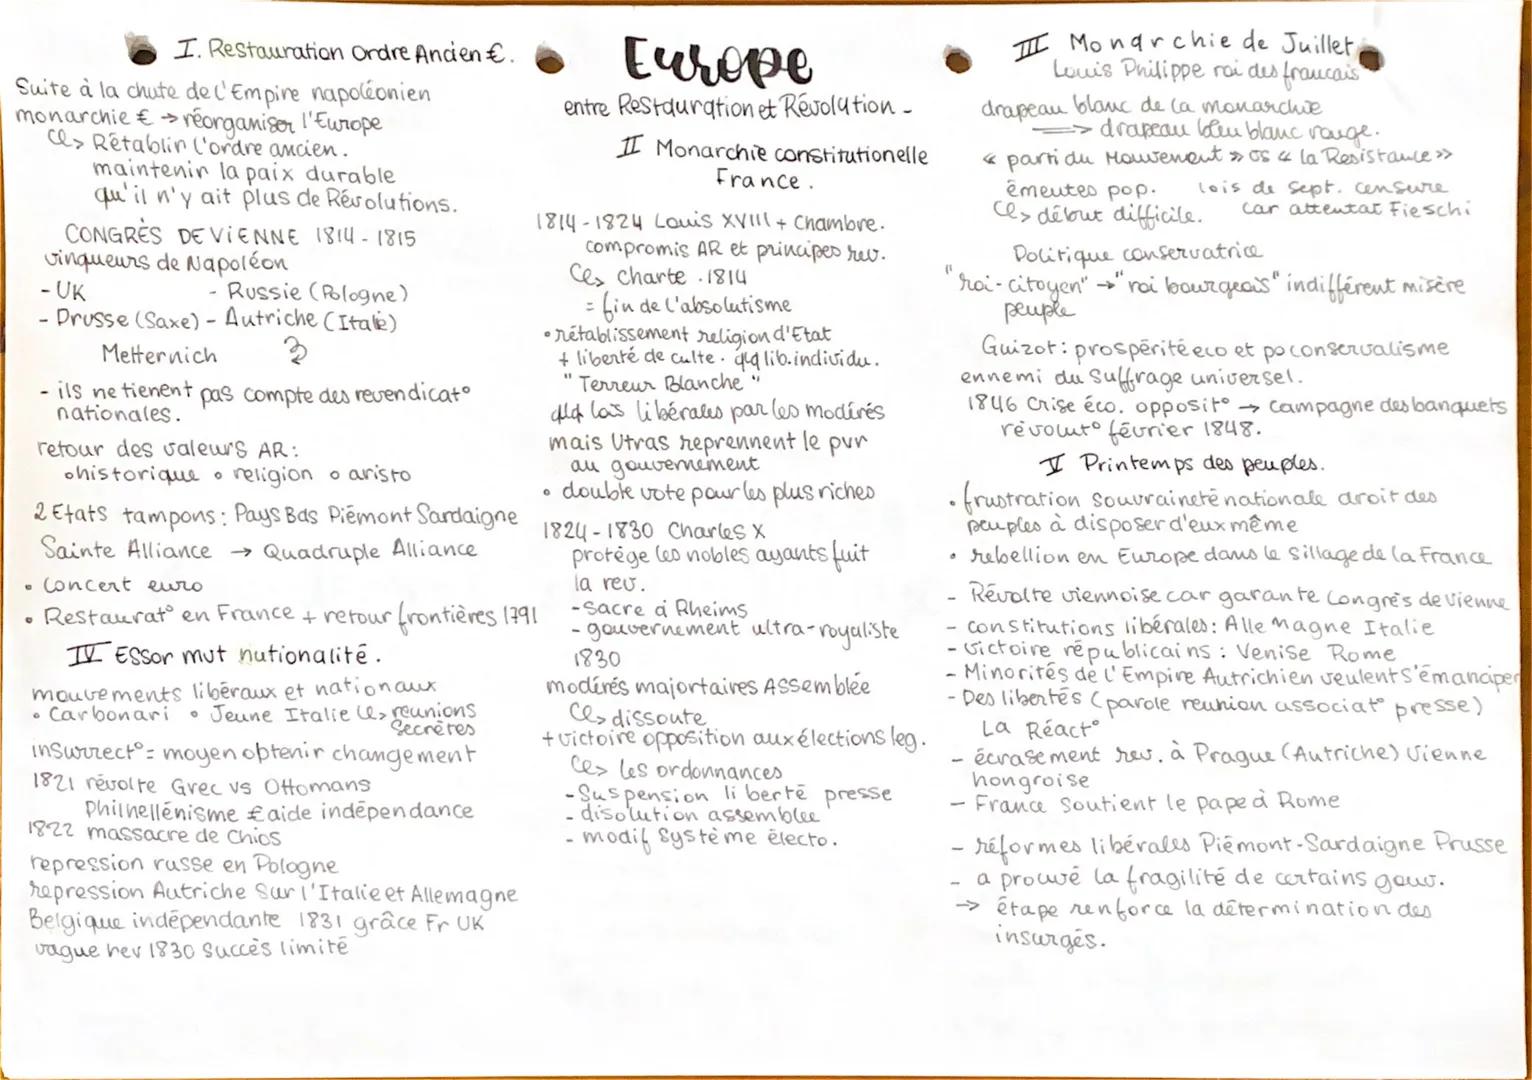 Europe
entre Restauration et Révolution -
I. Restauration Ordre Ancien €.
Suite à la chute de l'Empire napoléonien
monarchie € → réorganiser l'Europe
↳ Rétablir l'ordre ancien.
maintenir la paix durable
qu'il n'y ait plus de Révolutions.
CONGRÈS DE VIENNE 1814 - 1815
vinqueurs de Napoléon
- UK - Russie (Pologne)
- Prusse (Saxe) - Autriche (Italie)
Metternich
- ils ne tienent pas compte des revendicat°
nationales.
retour des valeurs AR:
° historique ° religion ° aristo
2 Etats tampons : Pays Bas Piémont Sardaigne
Sainte Alliance → Quadruple Alliance
• Concert euro
• Restaurat° en France + retour frontières 1791
IV Essor mvt nationalité.
mouvements libéraux et nationaux
• Carbonari • Jeune Italie ↳ reunions
Secrètes
insurrect° = moyen obtenir changement
1821 révolte Grec vs Ottomans
Philhellénisme € aide indépendance
1822 massacre de Chios
repression russe en Pologne
repression Autriche sur l'Italie et Allemagne
Belgique indépendante 1831 grâce Fr UK
vague rev 1830 succès limité
II Monarchie constitutionelle
France.
1814 - 1824 Louis XVIII + Chambre.
compromis AR et principes rev.
↳ charte . 1814
= fin de l'absolutisme
• rétablissement religion d'Etat
+ liberté de culte . qlq lib. individu.
" Terreur Blanche "
qlq lois libérales par les modérés
mais Utras reprennent le pvr
au gouvernement
• double vote pour les plus riches
1824 - 1830 Charles X
protège les nobles ayants fuit
la rev.
- Sacre à Rheims
- gouvernement ultra-royaliste
1830
modérés majortaires Assemblée
↳ dissoute
+ victoire opposition aux élections leg.
↳ les ordonnances
- Suspension liberté presse
- disolution assemblee
- modif Système électo.
III Monarchie de Juillet
Louis Philippe roi des francais
drapeau blanc de la monarchie
⟹ drapeau bleu blanc rouge.
« parti du Mouvement » vs « la Resistance »
émeutes pop. lois de sept. censure
↳ début difficile. car attentat Fieschi
Politique conservatrice
"roi-citoyen" → "roi bourgeois" indifférent misère
peuple
Guizot : prospérité eco et po conservalisme
ennemi du Suffrage universel.
1846 Crise éco. opposit° → campagne des banquets
révolut° février 1848.
V Printemps des peuples.
• frustration souvraineté nationale droit des
peuples à disposer d'eux même
• rebellion en Europe dans le sillage de la France
- Révolte viennoise car garante Congrès de Vienne
- constitutions libérales : Allemagne Italie
- victoire républicains : Venise Rome
- Minorités de l'Empire Autrichien veulent s'émanciper
- Des libertés (parole reunion associat° presse)
La Réact°
- écrasement rev. à Prague (Autriche) Vienne
hongroise
- France Soutient le pape à Rome
- réformes libérales Piémont-Sardaigne Prusse
- a prouvé la fragilité de certains gouv.
→ étape renforce la détermination des
insurgés.